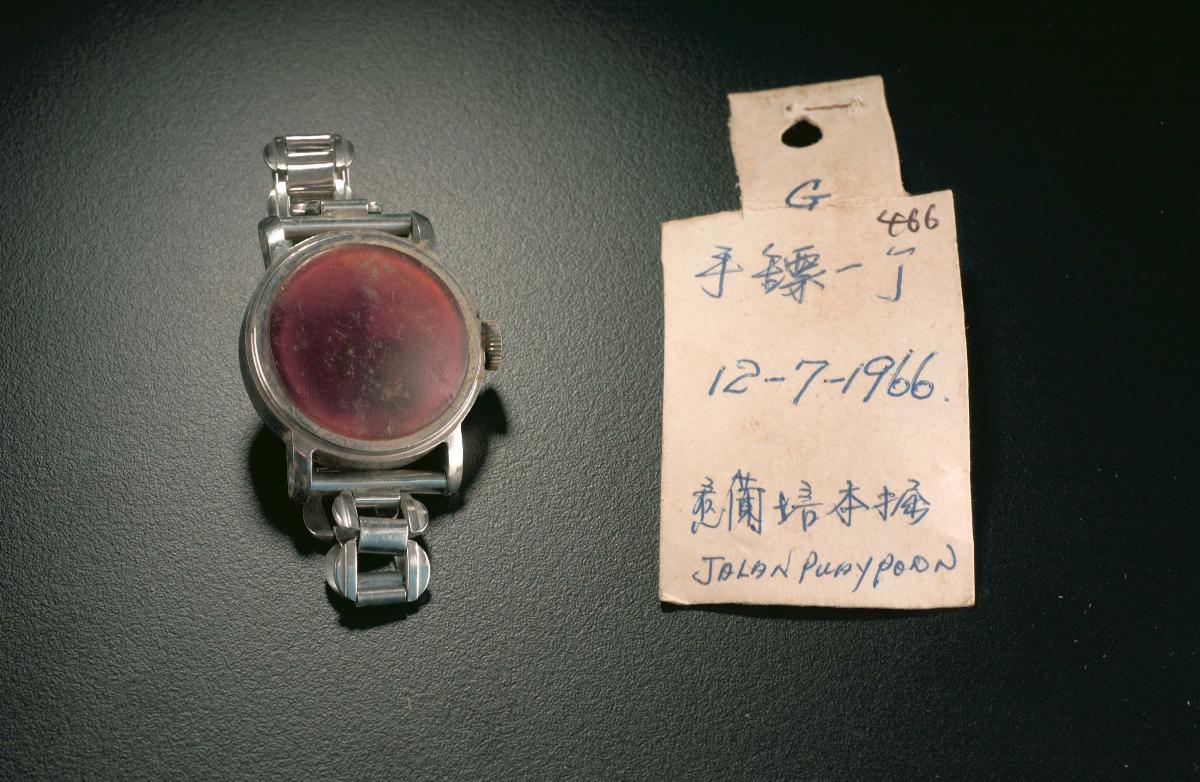 G
466
手鏢一亇
12-7-1966.
惹蘭培本掘
JALAN PUAY POON